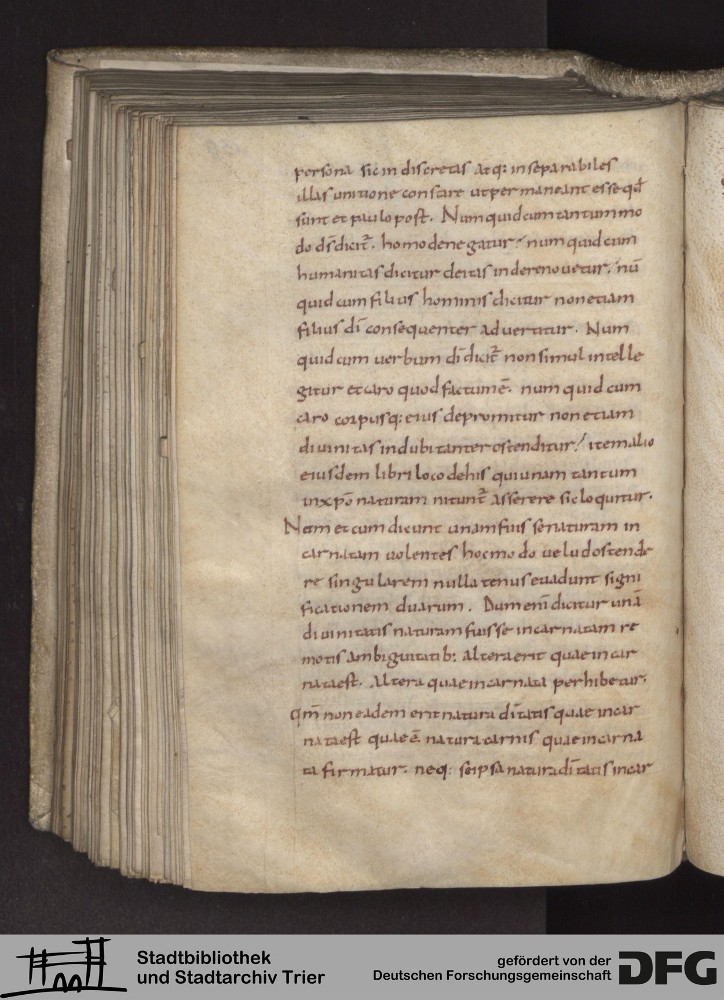 persona sic in discretas atq: inseparabiles
illas unitione constare ut permaneant esse qđ
sunt et paulo post. Numquid cum tantummo
do ds̄ dicit̄. homo denegatur / numquid cum
humanitas dicitur deitas inde remouetur / nū
quid cum filius hominis dicitur non etiam
filius dī consequenter aduertitur. Num
quid cum uerbum dī dicit̄ non simul intelle
gitur et caro quod factum ē. numquid cum
caro corpusq: eius depromitur non etiam
diuinitas indubitanter ostenditur / item alio
eiusdem libri loco de his qui unam tantum
in xp̄o naturam nitunt̄ asserere sic loquitur.
Nam et cum dicunt unam fuisse naturam in
carnatam uolentes hocmodo uelud ostende
re singularem nullatenus euadunt signi
ficationem duarum. Dum enī dicitur unā
diuinitatis naturam fuisse incarnatam re
motis ambiguitatib: altera erit quae incar
nata est. Altera quae incarnata perhibetur.
qm̄ non eadem erit natura dītatis quae incar
nata est quae ē natura carnis quae incarna
ta firmatur. neq: se ipsa natura dītatis incar
Stadtbibliothek
und Stadtarchiv Trier
gefördert von der
Deutschen Forschungsgemeinschaft
DFG